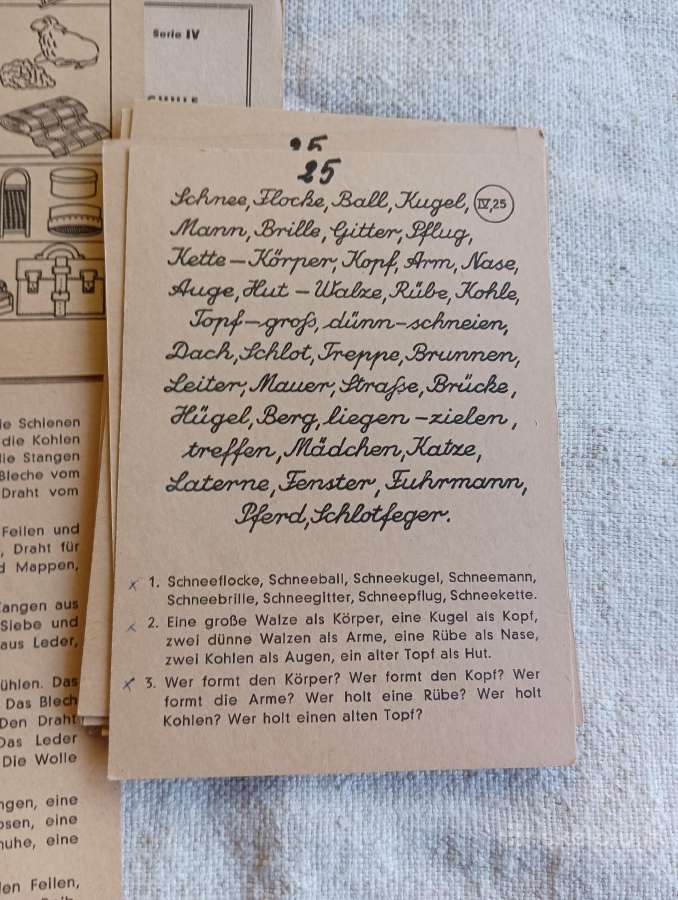 Serie IV
25
25
Schnee, Flocke, Ball, Kugel, IV,25
Mann, Brille, Gitter, Pflug,
Kette – Körper, Kopf, Arm, Nase,
Auge, Hut – Walze, Rübe, Kohle,
Topf – groß, dünn – schneien,
Dach, Schlot, Treppe, Brunnen,
Leiter, Mauer, Straße, Brücke,
Hügel, Berg, liegen – zielen,
treffen, Mädchen, Katze,
Laterne, Fenster, Fuhrmann,
Pferd, Schlotfeger.
1. Schneeflocke, Schneeball, Schneekugel, Schneemann,
Schneebrille, Schneegitter, Schneepflug, Schneekette.
2. Eine große Walze als Körper, eine Kugel als Kopf,
zwei dünne Walzen als Arme, eine Rübe als Nase,
zwei Kohlen als Augen, ein alter Topf als Hut.
3. Wer formt den Körper? Wer formt den Kopf? Wer
formt die Arme? Wer holt eine Rübe? Wer holt
Kohlen? Wer holt einen alten Topf?
Schienen
die Kohlen
Stangen
Bleche vom
Draht vom
Feilen und
Draht für
Mappen,
Zangen aus
Siebe und
aus Leder,
ühlen. Das
Das Blech
Den Draht
Das Leder
Die Wolle
ngen, eine
osen, eine
huhe, eine
len Feilen,